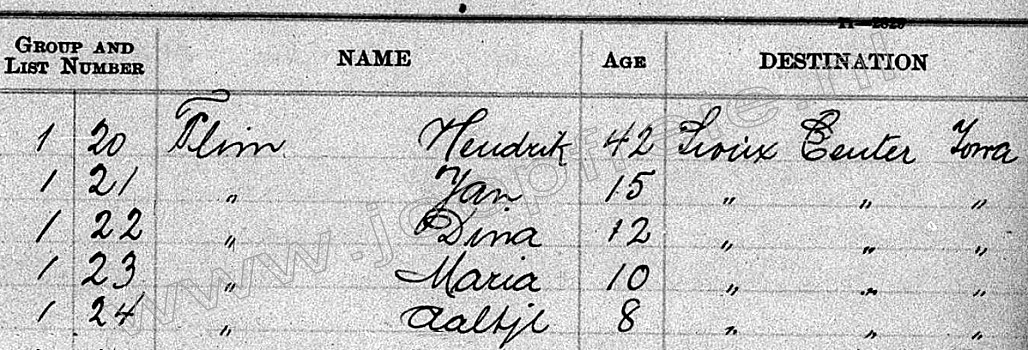 11—2820
GROUP AND LIST NUMBER NAME AGE DESTINATION
1 20 Flim Hendrik 42 Sioux Center Iowa
1 21 " Jan 15 " " "
1 22 " Dina 12 " " "
1 23 " Maria 10 " " "
1 24 " Aaltje 8 " " "